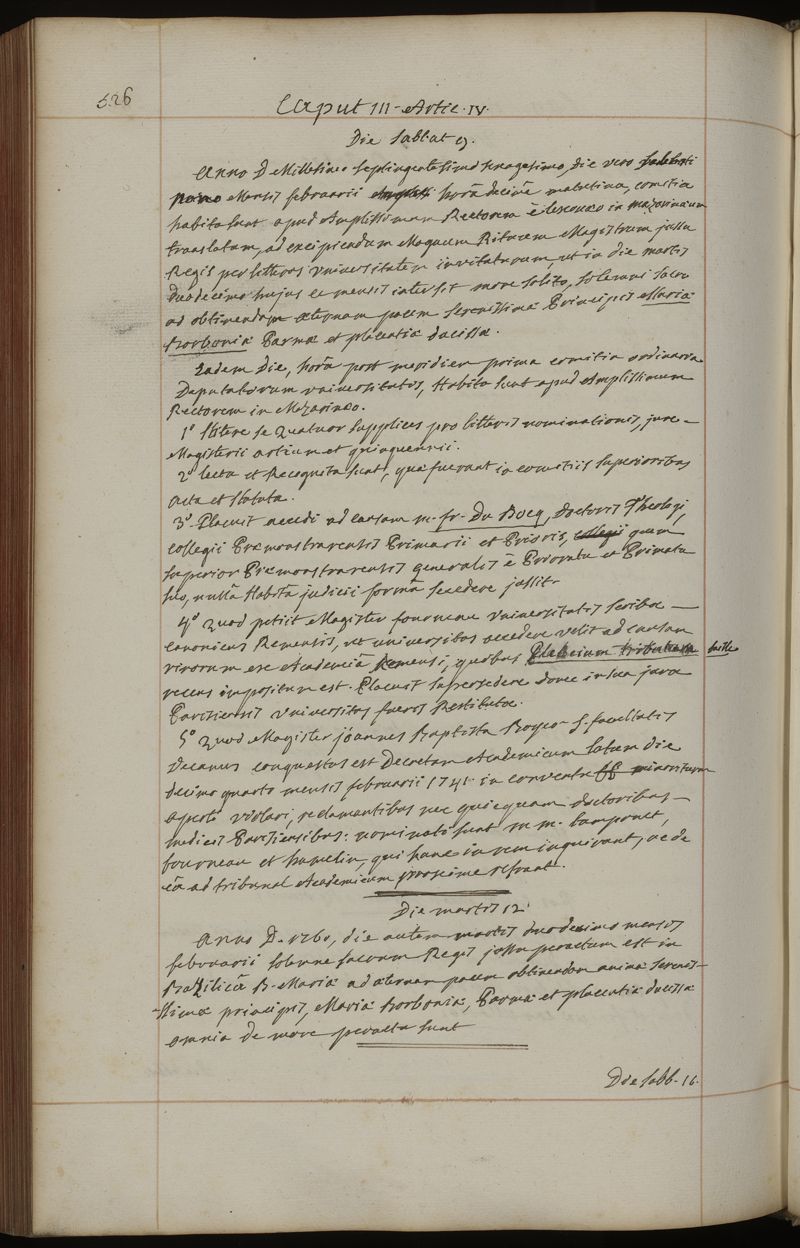 526
Caput III - Artic. IV.
Die Sabbat 9.
Anno D Millesimo Septingentesimo sexagesimo, die vero
nono Mensis februarii horâ decimâ matutina, comitia
habita sunt apud Amplissimum Rectorem è in mazarinæum
translatum, ad excipiendum Magnum Rituum Magistrum jussu
Regis per litteras universitatem invitaturum, ut in die martis
duodecimo hujus ce mensis intersit more solito, solemni sacro
ad obtinendam æternam pacem serenissimæ Principis Mariæ
Borboniæ Parmæ et placentiæ ducissæ.
Eadem Die, horâ post meridiem prima comitia ordinaria
Deputatorum universitatis, Habita sunt apud Amplissimum
Rectorem in Mazarinæo.
1º Stitere se quatuor supplices pro litteris nominationis, jure
Magisterii artium et quinquennii.
2º lecta et Recognita sunt, quæ fuerant in comitiis superioribus
acta et statuta.
3º Placuit accedi ad causam m. fr. Du Bocq, doctoris Theologi,
collegii Præmonstratensis Primarii et Prioris, collegii quem
superior Præmonstratensis generalis è Prioratu et Primatu
suo, nullâ Habitâ judicii formâ secedere jussit.
4º quod petiit Magister fourneau universitatis scriba
canonicus Remensis, ut universitas accedere velit ad causam
virorum ex Academiâ Remensi, quibus tributum taille
recens impositum est. Placuit supersedere donec in sua jura
Parisiensis universitas fuerit Restituta.
5º quod Magister joannes Baptista Boyer S. facultatis
decanus conquestus est Decretum Academicum latum die
decimo quarto mensis februarii 1741 in conventu minoritarum
aperte violari, reclamantibus nec quicquam doctoribus
medicis Parisiensibus: nominati sunt m m. camponet,
fourneau et hamelin, qui hanc in rem inquirant, ac de
eâ ad tribunal Academicum proxime referant.
Die martis 12.
Anno D. 1760, die autem martis duodecimo mensis
februarii solemne sacrum Regis jussu peractum est in
Bazilicâ B. Mariæ ad æternam pacem obtinendam animæ serenis-
simæ principis, Mariæ Borboniæ, Parmæ et placentiæ ducissæ
omnia de more peracta sunt
Die sabb. 16.